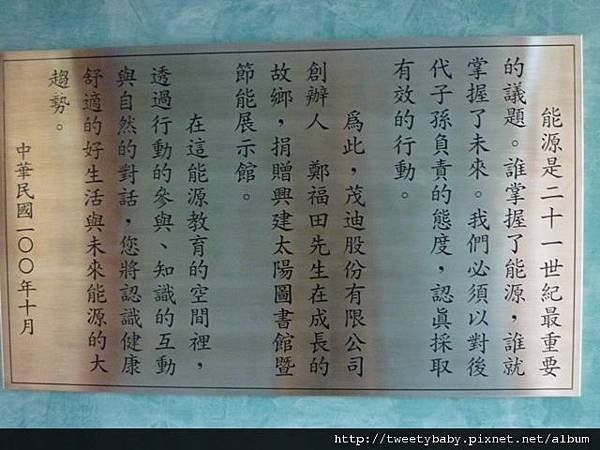 能源是二十一世紀最重要
的議題。誰掌握了能源，誰就
掌握了未來。我們必須以對後
代子孫負責的態度，認真採取
有效的行動。
為此，茂迪股份有限公司
創辦人　鄭福田先生在成長的
故鄉，捐贈興建太陽圖書館暨
節能展示館。
在這能源教育的空間裡，
透過行動的參與、知識的互動
與自然的對話，您將認識健康
舒適的好生活與未來能源的大
趨勢。
中華民國一〇〇年十月
http://tweetybaby.pixnet.net/album